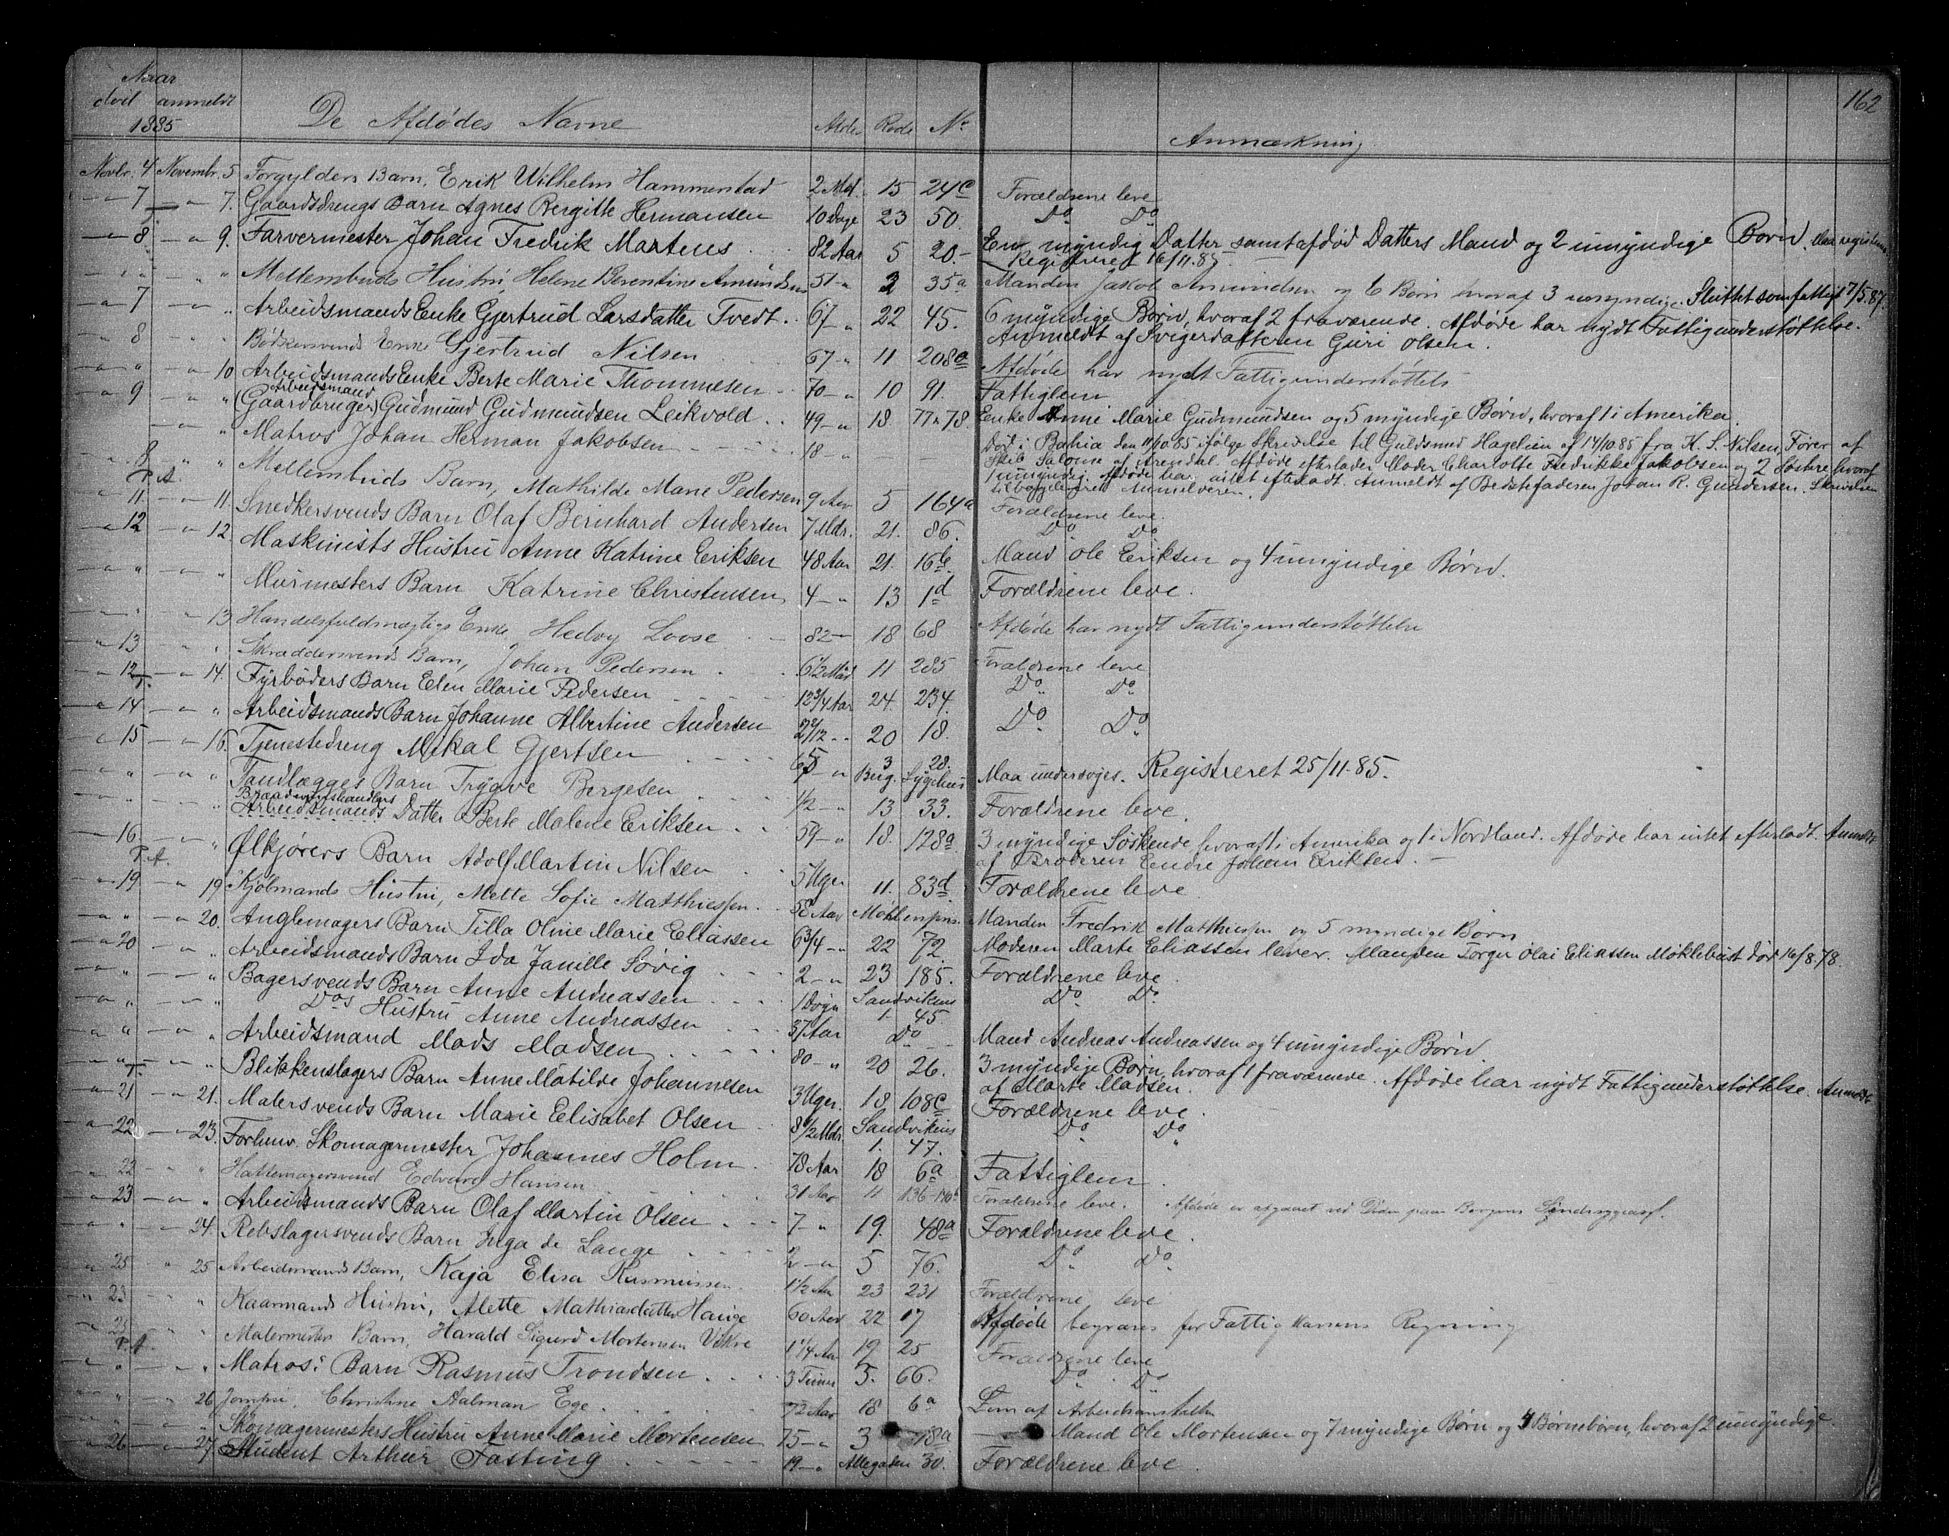 162
Naar
død anmeldt
1885 De Afdødes Navne Alder Rode No Anmærkning
Novbr. 4 Novembr. 5 Forgylders Barn, Erik Wilhelm Hammerstad 2 Md. 15 24c Forældrene leve
" 7 " 7. Gaardsdrengs Barn Agnes Bergitte Hermansen 10 Dage 23 50. Do Do
" 8 " 9. Farvermester Johan Fredrik Martens 82 Aar 5 20. En myndig Datter samt afdød Datters Mand og 2 umyndige Børn. Maa registreres
Registreret 16/11.85.
" " " " Mellembuds Hustru, Helene Berentine Amundsen 51 " 2 35a Manden Jakob Amundsen og 6 Børn hvoraf 3 umyndige. Sluttet som fattigt 7/5.87.
" 7 " " Arbeidsmands Enke Gjertrud Larsdatter Tvedt. 67 " 22 45. 6 myndige Børn, hvoraf 2 fraværende. Afdøde har nydt Fattigunderstøttelse.
Anmeldt af Svigerdatteren Guri Olsen.
" 8 " " Bødkersvends Enke Gjertrud Nilsen 67 " 11 208a Afdøde har nydt Fattigunderstøttels
" " " 10. Arbeidsmands Enke Berte Marie Thommesen 70 " 10 91. Fattiglem
Arbeidsmand
" 9 " " (Gaardbruger) Gudmund Gudmundsen Leikvold 49 " 18 77 " 78. Enke Anne Marie Gudmundsen og 5 myndige Børn, hvoraf 1 i Amerika
" " Matros Johan Herman Jakobsen 18 " Død i Bahia den 11/10.85 ifølge Skrivelse til Guldsmed Hagelsen af 14/10.85 fra K. S. Nilsen, Fører af
Skib Salome af Arendal. Afdøde efterlader Moder Charlotte Fredrikke Jakobsen og 2 Søstre hvoraf
1 umyndig. Afdøde har intet efterladt. Anmeldt af Bedstefaderen Johan R. Gundersen. Skrivelsen
tilbagelevert Anmelderen.
" 8 " " Mellembuds Barn, Mathilde Marie Pedersen 9 Aar 5 164a Forældrene leve.
" 11 " 11. Snedkersvends Barn Olaf Bernhard Andersen 7 Mdr. 21. 86. Do Do
" 12 " 12. Maskinists Hustru Anne Katrine Eriksen 48 Aar 21. 16b. Mand Ole Eriksen og 4 umyndige Børn.
" " " " Murmesters Barn Katrine Christensen 4 " 13 1d Forældrene leve.
" " " 13 Handelsfuldmægtigs Enke, Hedvig Loose 82 " 18 68 Afdøde har nydt Fattigunderstøttelse
" 13 " " Skræddersvends Barn, Johan Pedersen 6 1/2 Md 11 285 Forældrene leve
" 12 " 14. Fyrbøders Barn Elen Marie Pedersen 12 3/4 Aar 24. 234. Do Do
" 14 " " Arbeidsmands Barn Johanne Albertine Andersen 2 2/12 " 20 18. Do Do
" 15 " 16. Tjenestedreng Mikal Gjertsen 65 " Berg. Sygehus Maa undersøges. Registreret 25/11.85.
" " " " Tandlægges Barn Trygve Bergesen 1/2 " 13 33. Forældrene leve.
Brændevinshandlers
" " " " Arbeidsmands Datter Berte Malene Eriksen 59 " 18. 128a 3 myndige Søskende, hvoraf 1 i Amerika og 1 i Nordland. Afdøde har intet efterladt. Anmeldt
af Broderen Endre Johan Eriksen.
" 16. " " Ølkjørers Barn Adolf Martin Nilsen 5 Uger 11. 83d. Forældrene leve
" 19 " 19. Kjølmands Hustru, Mette Sofie Matthiessen 58 Aar Møhlenpris. Manden Fredrik Matthiessen og 5 myndige Børn
" " " 20. Anglemagers Barn Tilla Oline Marie Eliassen 6 3/4 " 22 72. Moderen Marte Eliassen lever. Manden Torger Olai Eliassen Møklebust død 16/8.78.
" 20 " " Arbeidsmands Barn Ida Jamille Søvig 2 " 23 185. Forældrene leve.
" " " " Bagersvends Barn Anne Andreassen 1 Døgn Sandvikens 1. 45 Do Do
" " " " Dos Hustru Anne Andreassen 37 Aar Do Mand Andreas Andreassen og 4 umyndige Børn.
" " " " Arbeidsmand Mads Madsen 80 " 20 26. 3 myndige Børn, hvoraf 1 fraværende. Afdøde har nydt Fattigunderstøttelse. Anmeldt
af Marte Madsen.
" " " " Blikkenslagers Barn Anne Matilde Johannesen 3 Uger. 18 108c Forældrene leve.
" 21 " 21. Malersvends Barn Marie Elisabet Olsen 8 1/2 Mdr Sandvikens 1. 47. Do Do
" 22 " 23. Forhenv. Skomagermester Johannes Holm 78 Aar 18 6a Fattiglem.
" 23 " " Hattemagersvend Edvard Hansen 31 Aar 11 Forældrene leve.
" 23 " " Arbeidsmands Barn Olaf Martin Olsen 7 " 19. 48a Forældrene leve.
" " " 24. Rebslagersvends Barn Inga de Lange 2 " 5 76. Do Do
" 25 " 25 Arbeidsmands Barn, Kaja Elisa Rasmussen 1 1/2 Aar 23 231 Forældrene leve
" 23 " " Kaarmands Hustru, Alette Mathiasdatter Hauge 60 Aar 22 17 Afdøde begraves for Fattigkassens Regning
" 25 " " Malermesters Barn, Harald Sigurd Mortensen Vikre 1 1/4 Aar 19 25 Forældrene leve
" " " " Matros: Barn Rasmus Trondsen 3 Timer 5. 66. Do Do
" " " 26 Jomfru Christine Aalman Ege 72 Aar 18 6a Lem af Arbeidsanstalten
" " " " Skomagermesters Hustru Anne Marie Mortensen 75 " 3 18a Mand Ole Mortensen og 7 myndige Børn og 4 Børnebørn, hvoraf 2 umyndige.
" 26 " 27. Student Arthur Fasting 19 " Allegaten 30. Forældrene leve.